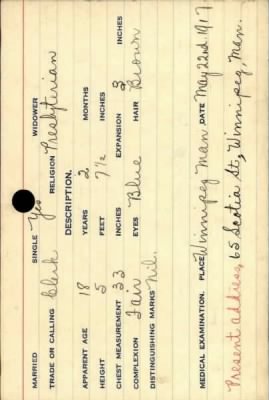 MARRIED SINGLE Yes WIDOWER
TRADE OR CALLING Clerk RELIGION Presbyterian
DESCRIPTION.
APPARENT AGE 18 YEARS 2 MONTHS
HEIGHT 5 FEET 7½ INCHES
CHEST MEASUREMENT 33 INCHES EXPANSION 3 INCHES
COMPLEXION Fair EYES Blue HAIR Brown
DISTINGUISHING MARKS Nil.
MEDICAL EXAMINATION. PLACE Winnipeg Man. DATE May 22nd 1917
Present address, 65 Scotia St, Winnipeg, Man.